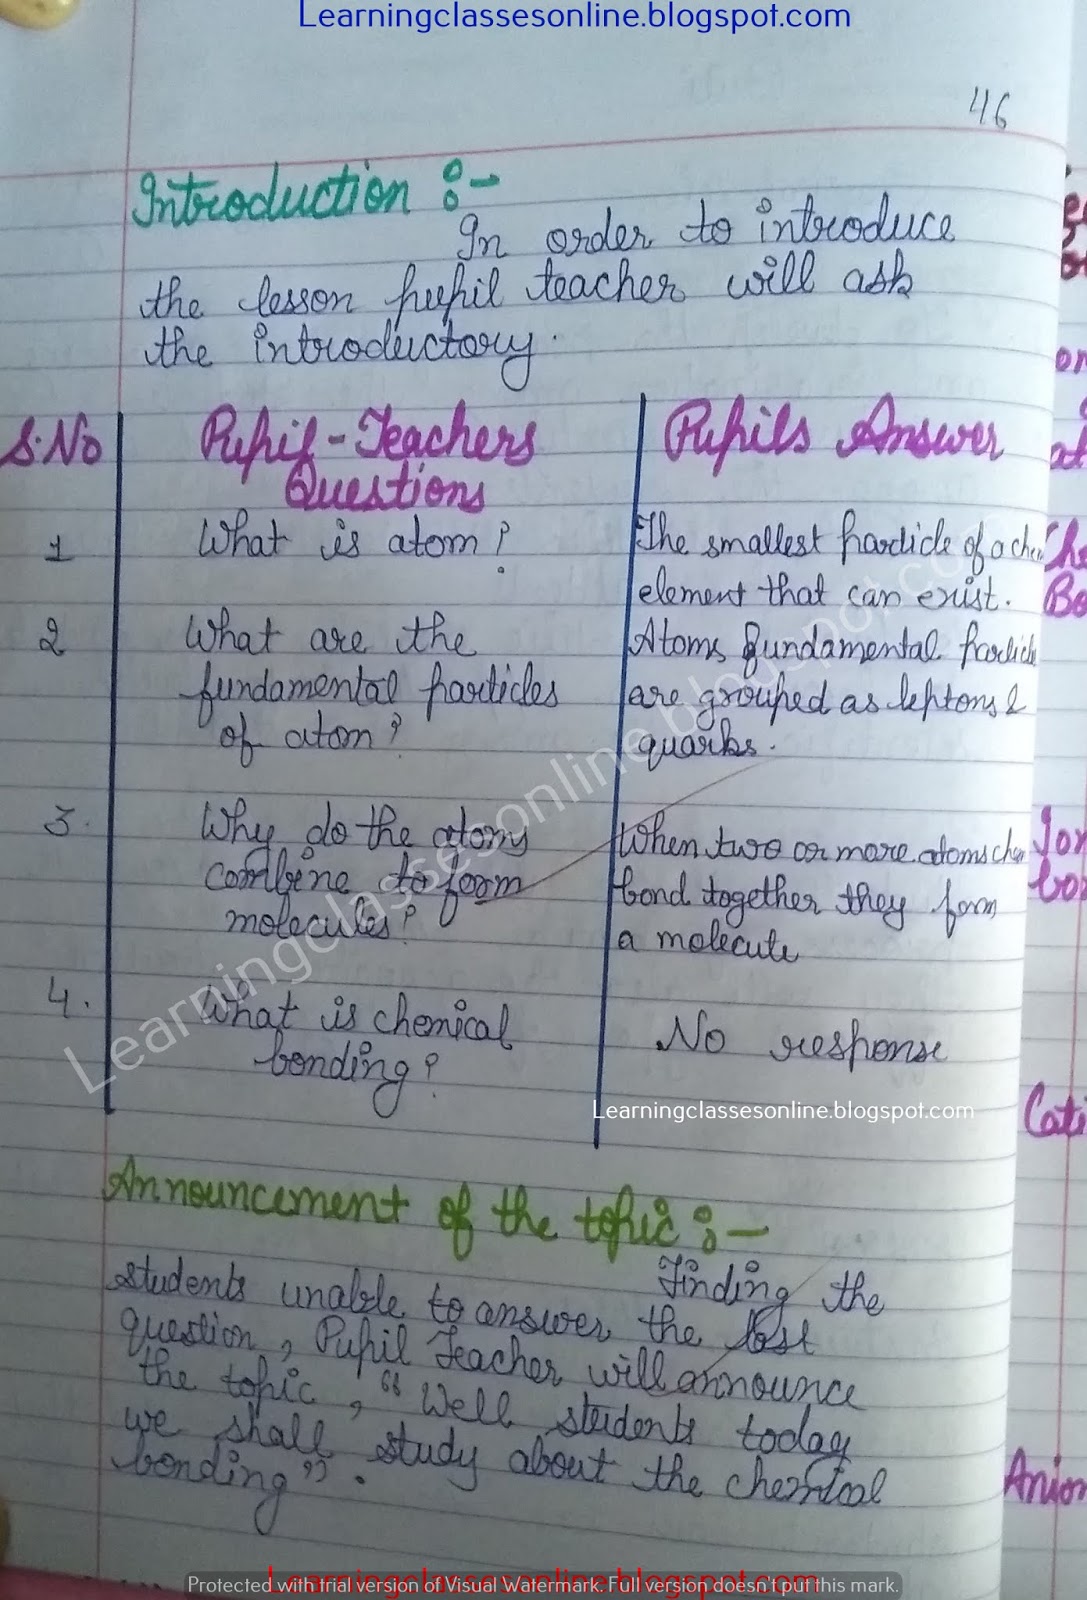 Learningclassesonline.blogspot.com
46
Introduction :-
In order to introduce
the lesson pupil teacher will ask
the introductory.
S.No Pupil-Teachers Questions Pupils Answer
1 What is atom? The smallest particle of a chem
element that can exist.
2 What are the Atoms fundamental particle
fundamental particles are grouped as leptons &
of atom? quarks.
3. Why do the atoms When two or more atoms chem
combine to form bond together they form
molecules? a molecule
4. What is chemical No response
bonding?
Learningclassesonline.blogspot.com
Learningclassesonline.blogspot.com
Announcement of the topic :-
Finding the
students unable to answer the last
question, Pupil Teacher will announce
the topic, "Well students today
we shall study about the chemical
bonding".
Che
Bo
Ion
bon
Cati
Anion
Learningclassesonline.blogspot.com
Protected with trial version of Visual Watermark. Full version doesn't put this mark.